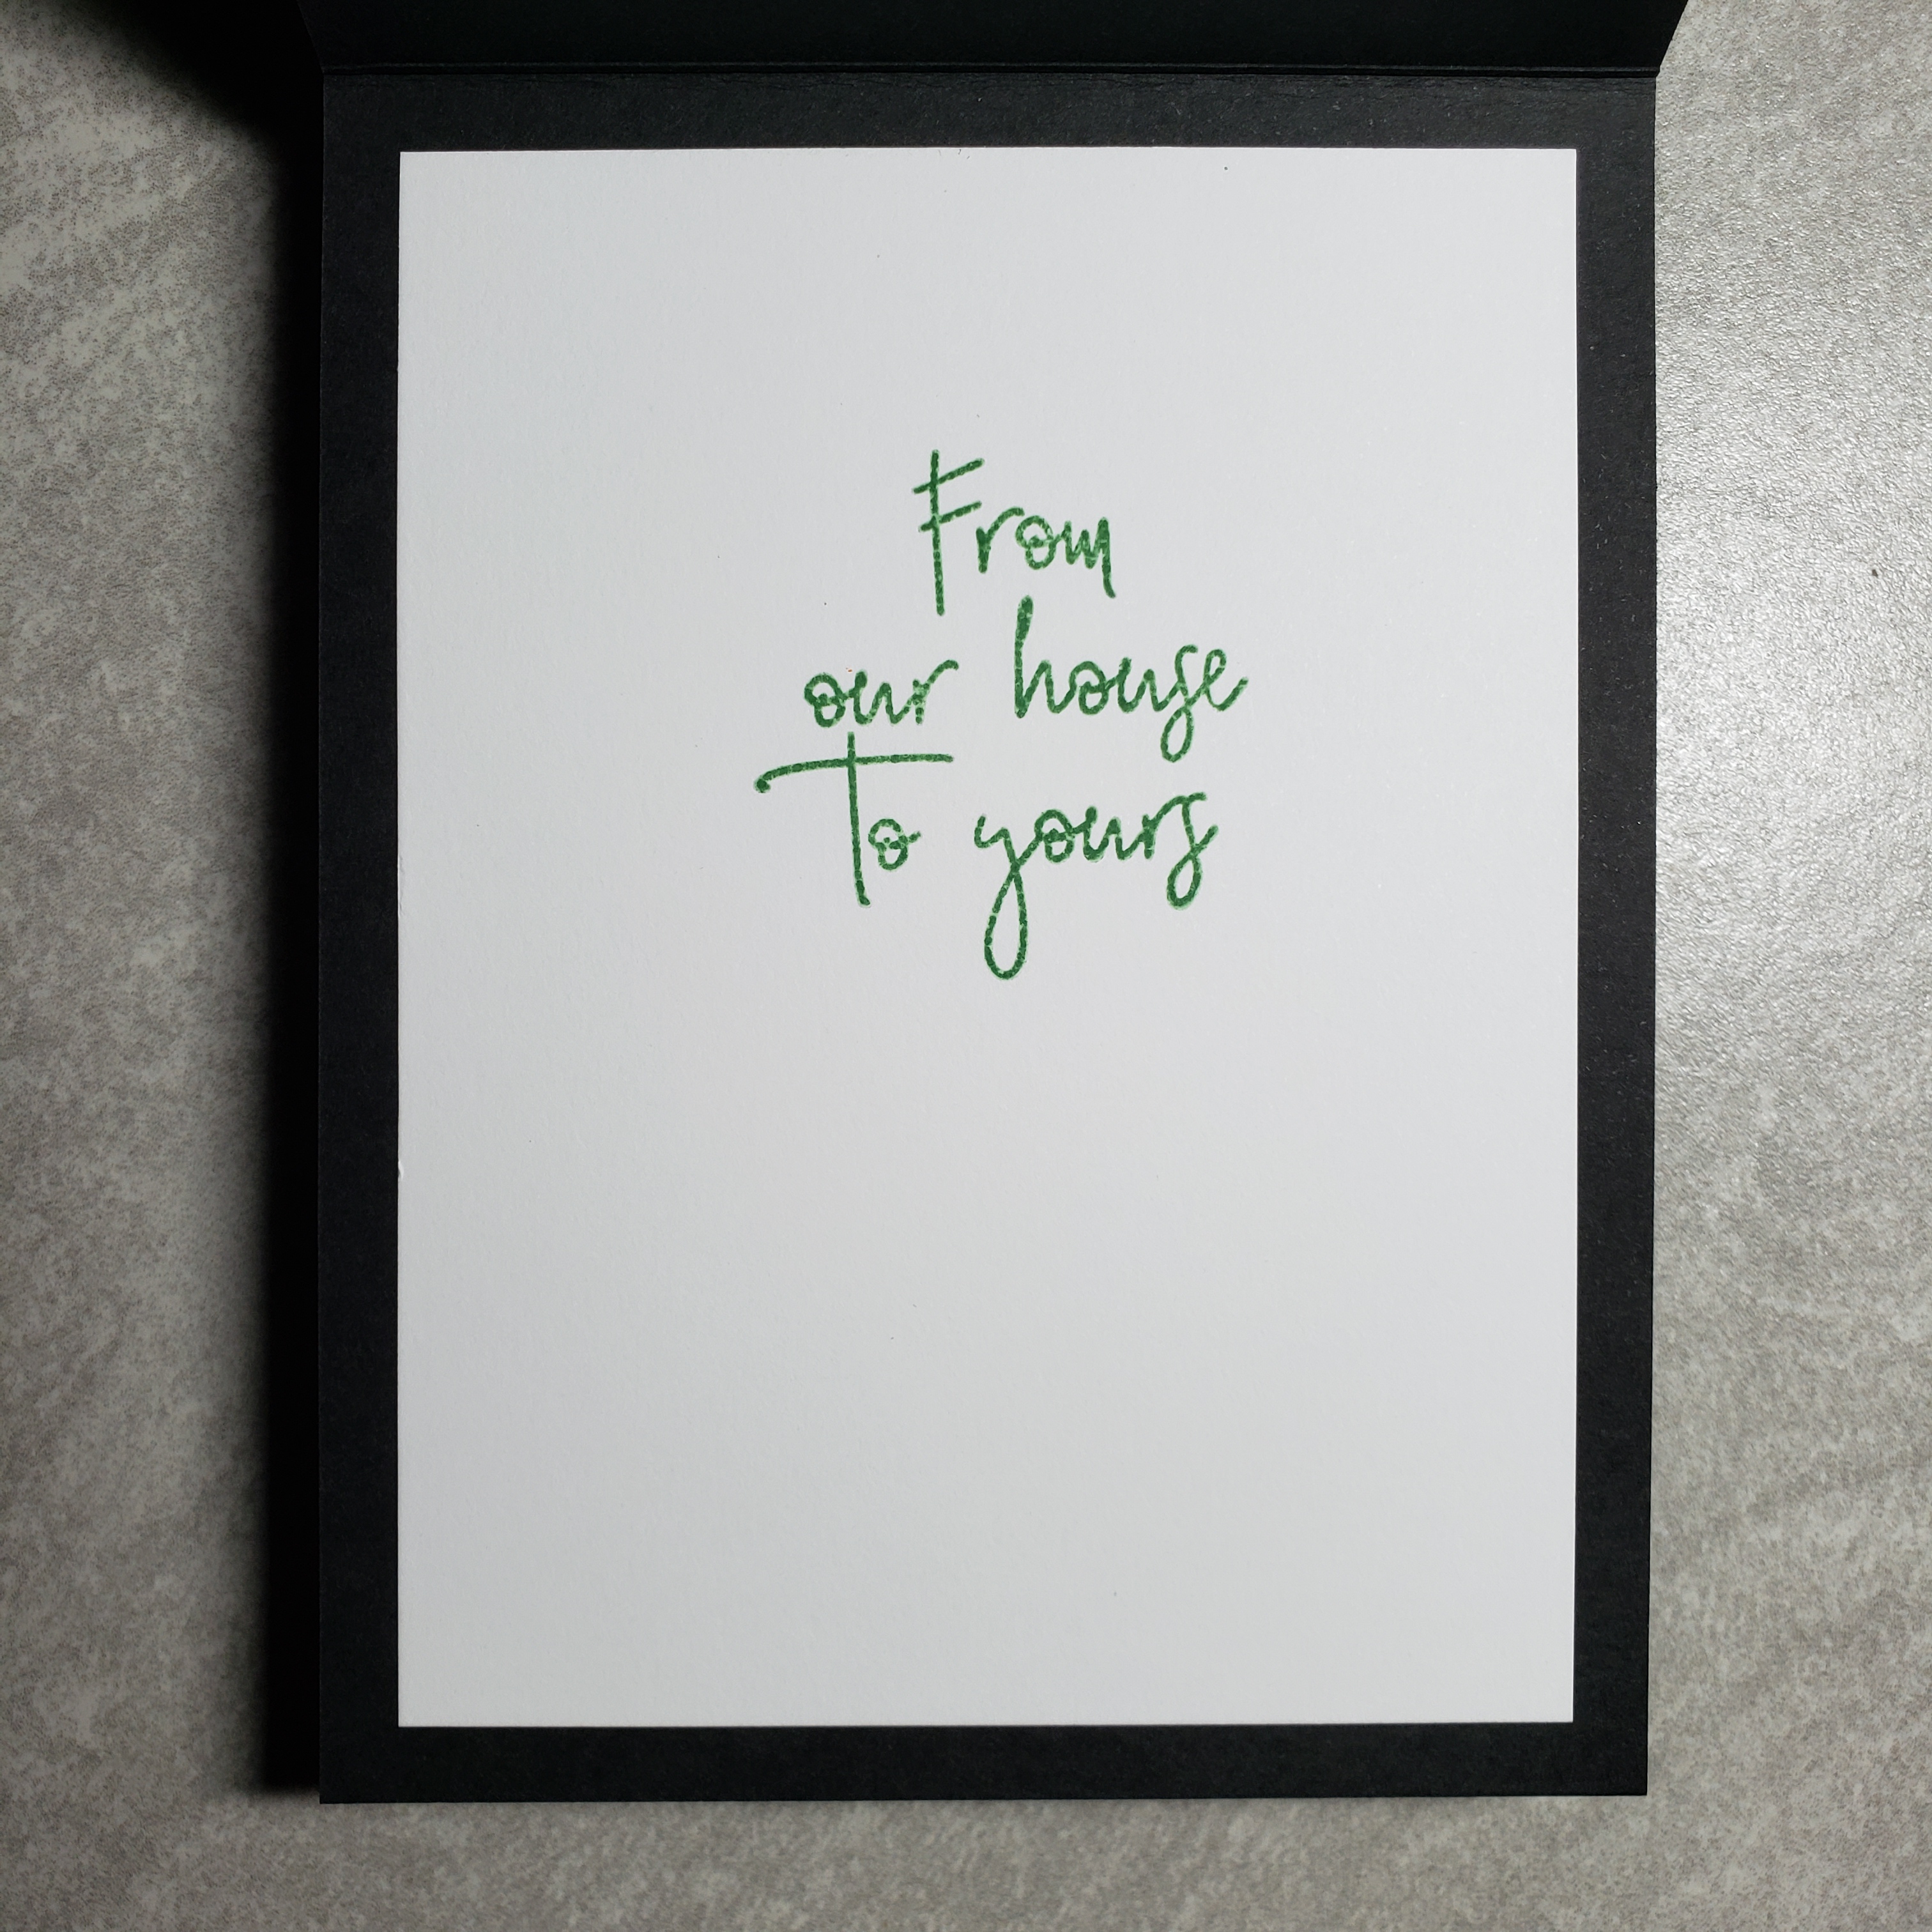 From
our house
To yours